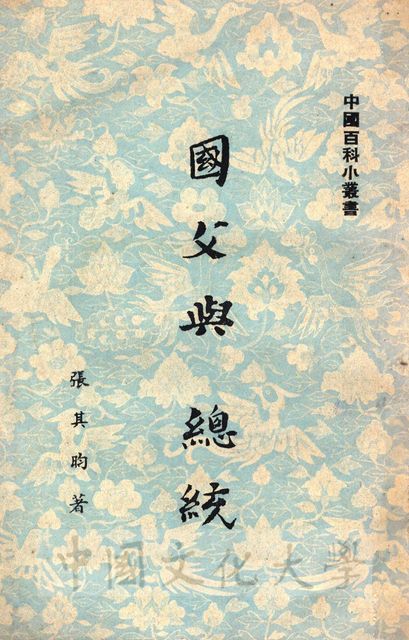 中國百科小叢書
國父與總統
張其昀著
中國文化大學